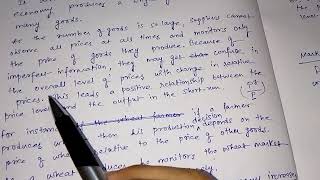 economy produces a
many goods.
As the number of goods is so large, suppliers cannot
observe all prices at all times and monitors only
the price of goods they produce. Because of
imperfect information, they may get confuse in
the overall level of prices with change in relative
prices. This leads a positive relationship between the
price level and the output in the short-run.
P↑
P
For instance, if a farmer
produces then his production depends on the
price of wheat relative to the price of other goods.
of wheat produces he monitors the wheat market